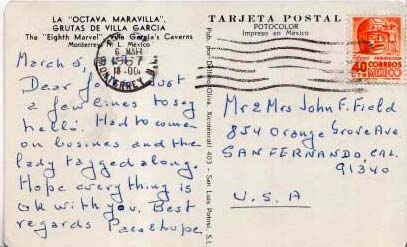 LA "OCTAVA MARAVILLA",
GRUTAS DE VILLA GARCIA
The "Eighth Marvel" Villa Garcia's Caverns
Monterrey N. L. México
March 5,
Dear Just
a few lines to say
hello. Had to come
on busines and the
lady tagged along.
Hope everything is
ok with you. Best
regards
TARJETA POSTAL
POTOCOLOR
Impreso en México
MONTERREY, N.L.
CORREOS
MEXICO
40
Mr & Mrs John F. Field
854 Orange Grove Ave
SAN FERNANDO, CAL.
91340
U.S.A
403 - San Luis Potosí, S.L.